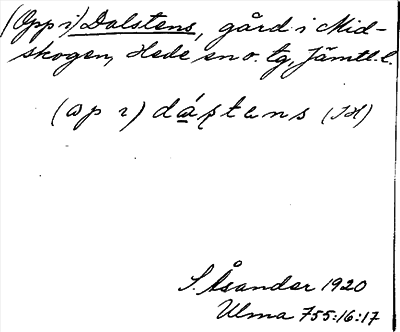 (Opp i) Dalstens, gård i Mid-
skogen, Hede sn o. tg, Jämtl. l.
(ap ı)
S. Åsander 1920
Ulma 755:16:17